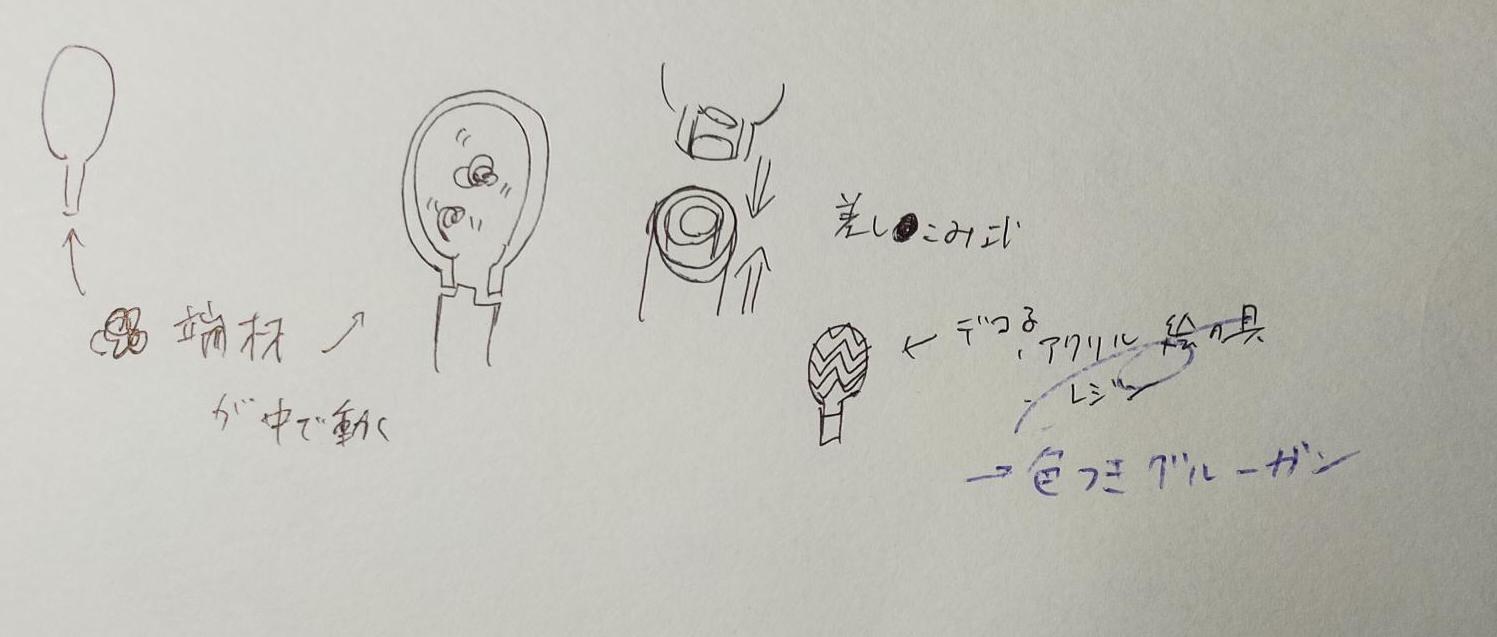 端材
が中で動く
差しこみ式
← デコる
・アクリル絵の具
・レジン
→ 色つきグルーガン